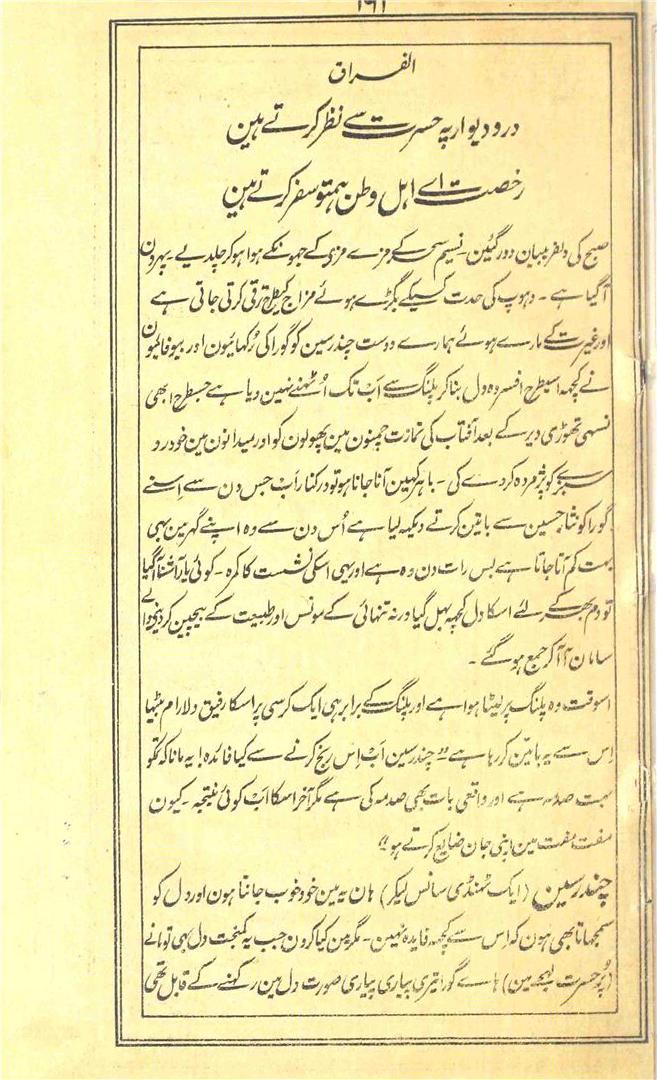 ۱۶۱
الفراق
در و دیوار پہ حسرت سے نظر کرتے ہین
رخصت اے اہل وطن ہمتو سفر کرتے ہین
صبح کی دلفریبیان دور گئین ۔ نسیم سحر کے مزے مزی کے جہونکے ہوا ہو کر چلدیے پہر دن
آگیا ہے ۔ دہوپ کی حدت کسیکے بگڑے ہوئے مزاج کیطرح ترقی کرتی جاتی ہے
اور غیرت کے مارے ہوئے ہمارے دوست چندر سین کو گورا کی رُکہائیون اور بیوفائیون
نے کچہہ اسطرح افسردہ دل بنا کر پلنگ سے اَب تک اُٹہنے نہین دیا ہے جسطرح ابھی
نسہی تھوڑی دیر کے بعد آفتاب کی تمازت چمنون مین پھولون کو اور میدانون مین خودرو
سبزے کو پژمردہ کر دے گی ۔ باہر کہین آنا جانا ہو تو درکنار اَب جس دن سے اسنے
گورا کو نثار حسین سے باتین کرتے دیکہہ لیا ہے اُس دن سے وہ اپنے گہر مین بھی
بہت کم آتا جاتا ہے بس رات دن وہ ہے اور یہی اسکی نشست کا کمرہ ۔ کوئی یار آشنا آگیا
تو دم بھر کے لئے اسکا دل کچہہ بہل گیا ورنہ تنہائی کے مونس اور طبیعت کے بیچین کر دینے والے
سامان آ آ کر جمع ہو گئے ۔
اسوقت وہ پلنگ پر لیٹا ہوا ہے اور پلنگ کے برابر ہی ایک کرسی پر اسکا رفیق دلارام بیٹہا
اِس سے یہ باتین کر رہا ہے ” چندر سین اَب اِس رنج کرنے سے کیا فائدہ! یہ مانا کہ تمکو
بہت صدمہ ہے اور واقعی بات بھی صدمہ کی ہے مگر آخر اسکا اَب کوئی نتیجہ ۔ کیون
مفت مفت مین اپنی جان ضایع کرتے ہو “
چندر سین (ایک ٹہنڈی سانس لیکر) ہان یہ مین خود خوب جانتا ہون اور دل کو
سمجہاتا بھی ہون کہ اِس سے کچہہ فایدہ نہین ۔ مگر مین کیا کرون جب یہ کمبخت دل بھی تو مانے
(پُر حسرت لہجے مین) ہاے گورا تیری پیاری پیاری صورت دل مین رکہنے کے قابل تھی